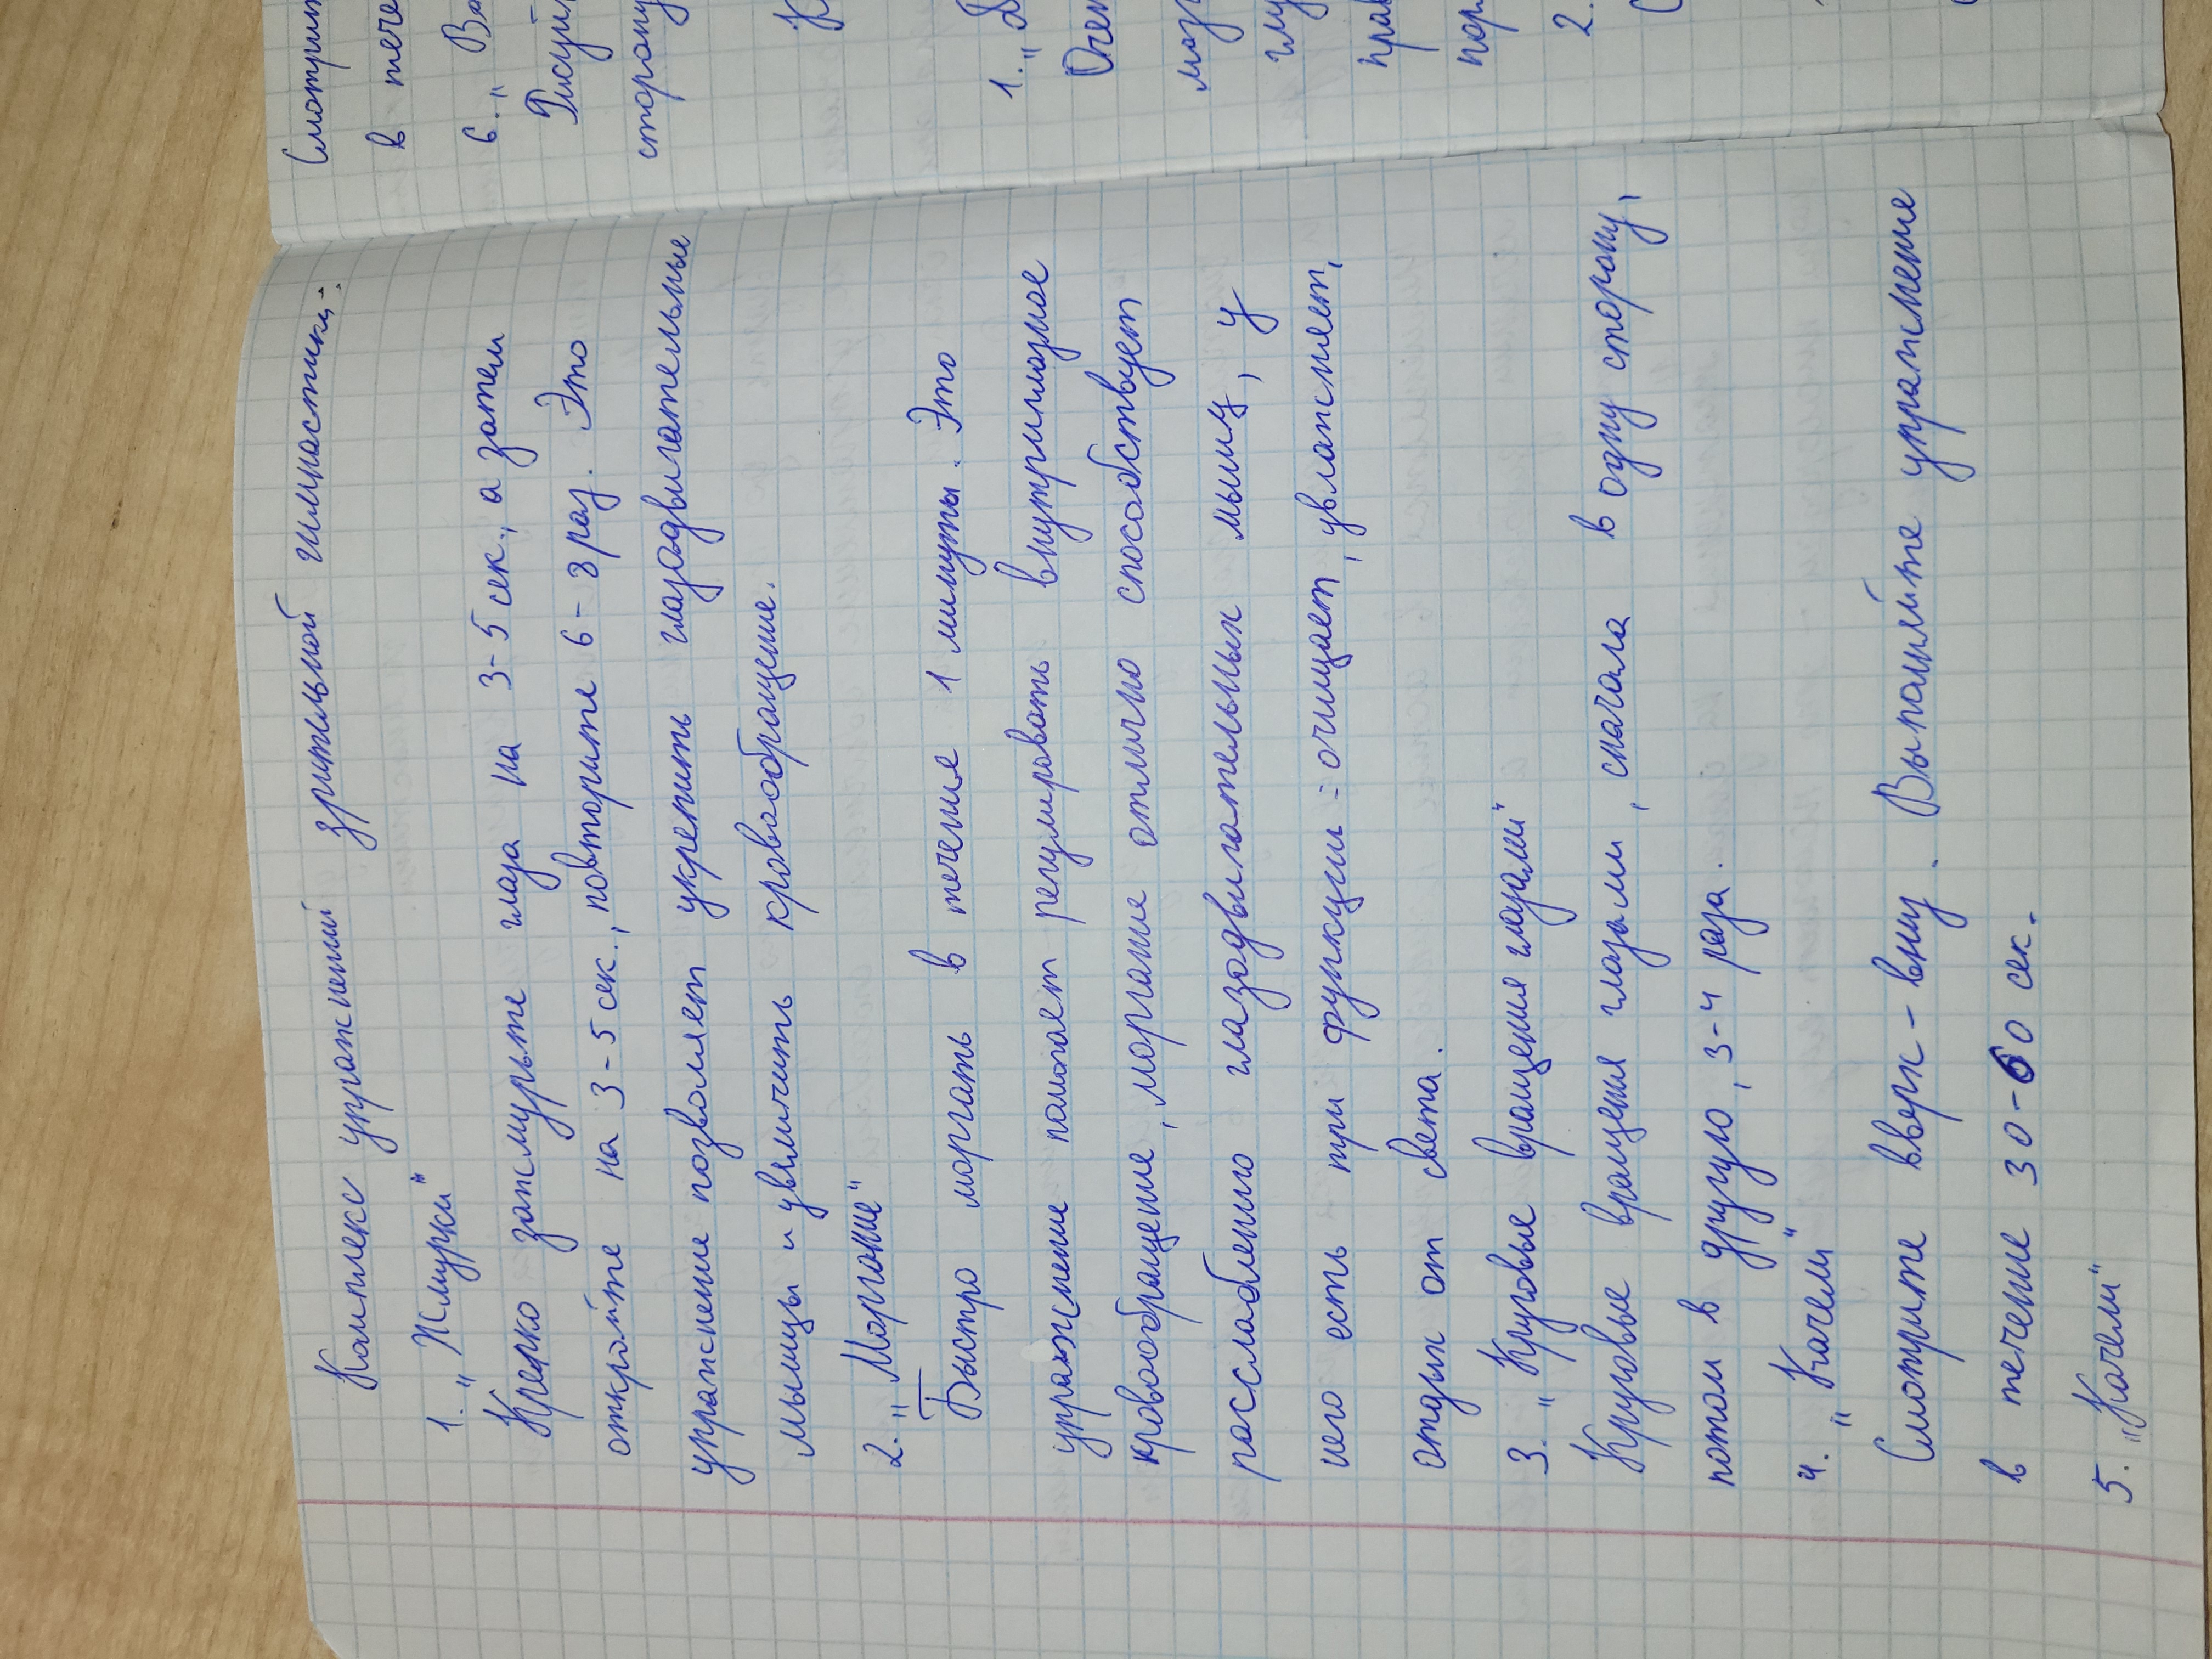 Комплекс упражнений зрительной гимнастики:
1. „Жмурки"
Крепко зажмурьте глаза на 3-5 сек., а затем
откройте на 3-5 сек., повторите 6-8 раз. Это
упражнение позволяет укрепить глазодвигательные
мышцы и увеличить кровообращение.
2. „Моргание"
Быстро моргать в течение 1 минуты. Это
упражнение помогает регулировать внутриглазное
кровообращение, моргание отлично способствует
расслаблению глазодвигательных мышц, у
него есть три функции = очищает, увлажняет,
отдых от света.
3. „Круговые вращения глазами"
Круговые вращения глазами, сначала в одну сторону,
потом в другую, 3-4 раза.
4. „Качели"
Смотрите вверх - вниз. Выполняйте упражнение
в течение 30-60 сек.
5. „Качели"
Смотрит
в тече
6. „Во
Рисуй
сторону
1. „
Очен
глу
прав
пор
2.